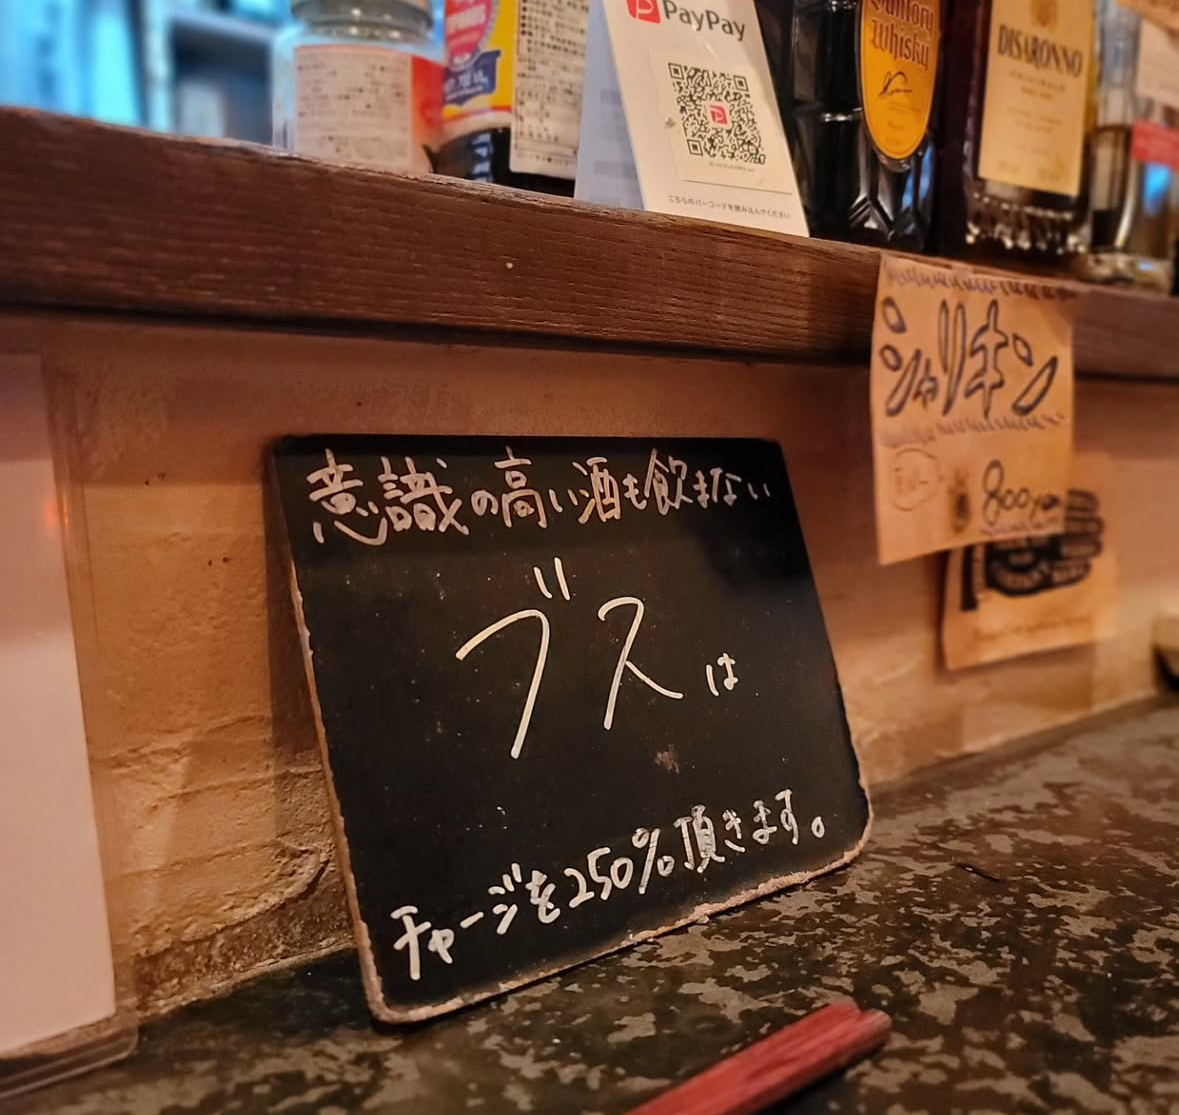 PayPay
こちらのバーコードを読み込んでください
Suntory
Whisky
DISARONNO
シャリキン
800yen
意識の高い酒も飲まない
ブスは
チャージを250%頂きます。